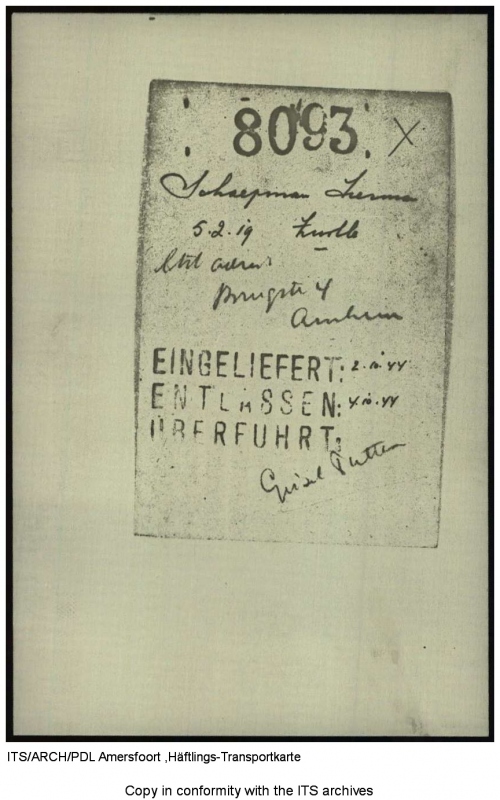 8093. X
Schaepman Herman
5.2.19 Zwolle
adres:
4
Arnhem
EINGELIEFERT: 2.10.44
ENTLASSEN: 4.10.44
ÜBERFUHRT:
Geisel Putten
ITS/ARCH/PDL Amersfoort ,Häftlings-Transportkarte
Copy in conformity with the ITS archives